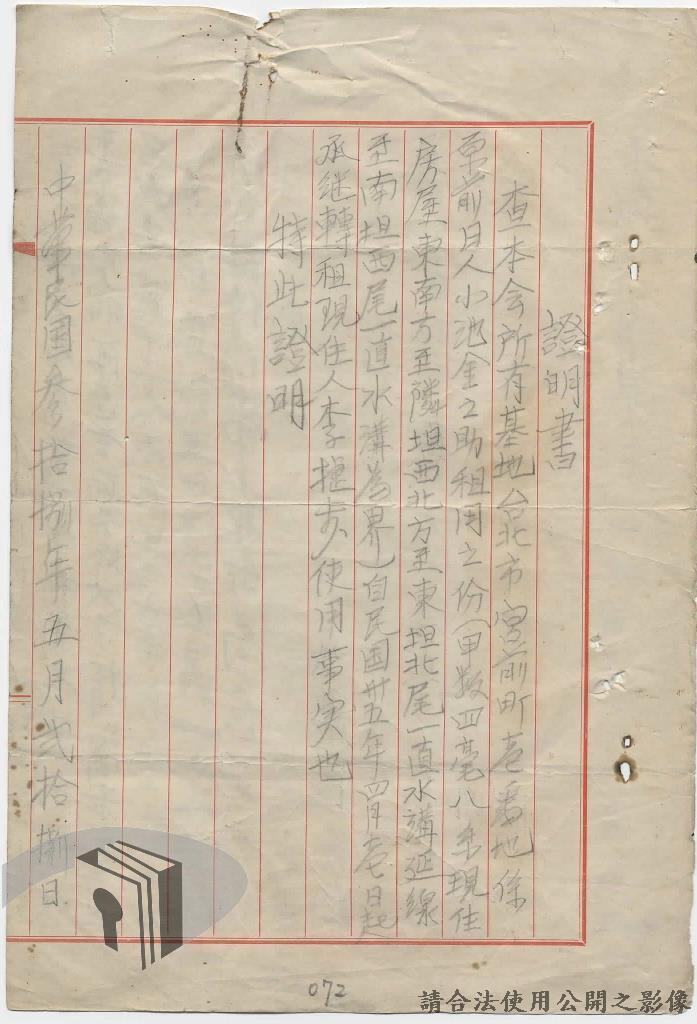 證明書
查本会所有基地台北市宮前町壱番地係
前日人小池金之助租用之份(甲数四毫八糸現住
房屋東南方至隣坦西北方至東坦北尾一直水講延線
至南坦西尾一直水溝為界)自民国卅五年四月壱日起
承継轉租現住人李 使用事実也
特此證明
中華民国参拾捌年五月弐拾捌日
072
請合法使用公開之影像